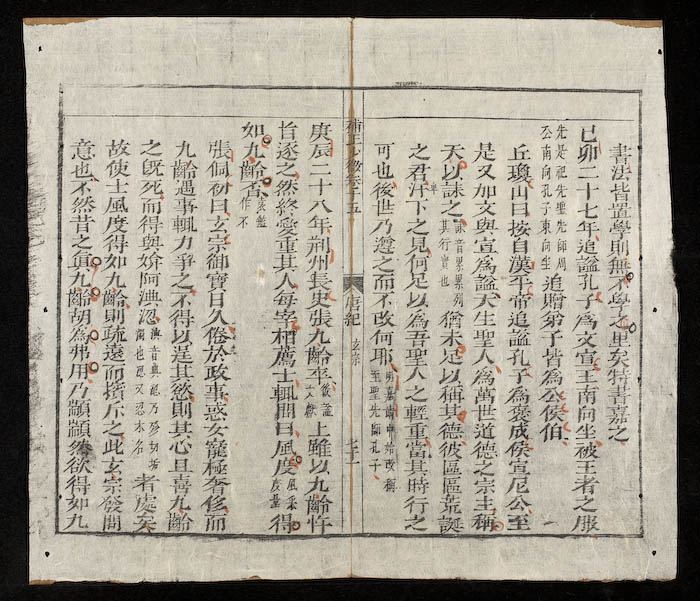 書法皆置學則無不學之里矣特書嘉之
己卯二十七年追謚孔子為文宣王南向坐被王者之服
先是祀先聖先師周公南向孔子東向坐追贈弟子皆為公侯伯
丘瓊山曰按自漢平帝追謚孔子為褒成侯宣尼公至
是又加文與宣為謚夫生聖人為萬世道德之宗主稱
天以誄之誄音累累列其行實也猶未足以稱其德彼區區荒誕
之君汙下之見何足以為吾聖人之輕重當其時行之
可也後世乃遵之而不改何耶明嘉靖中始改稱至聖先師孔子
補正
卷十五
唐紀
玄宗
七十一
庚辰二十八年荊州長史張九齡卒謚文獻上雖以九齡忤
旨逐之然終愛重其人每宰相薦士輒問曰風度風采度量得
如九齡否作不
張侗初曰玄宗御寶日久倦於政事惑女寵極奢侈而
九齡遇事輒力爭之不得以逞其慾則其心且喜九齡
之旣死而得與妢阿淟涊者處矣
故使士風度得如九齡則疏遠而擯斥之此玄宗發問
意也不然昔之真九齡胡為弗用乃顓顓然欲得如九